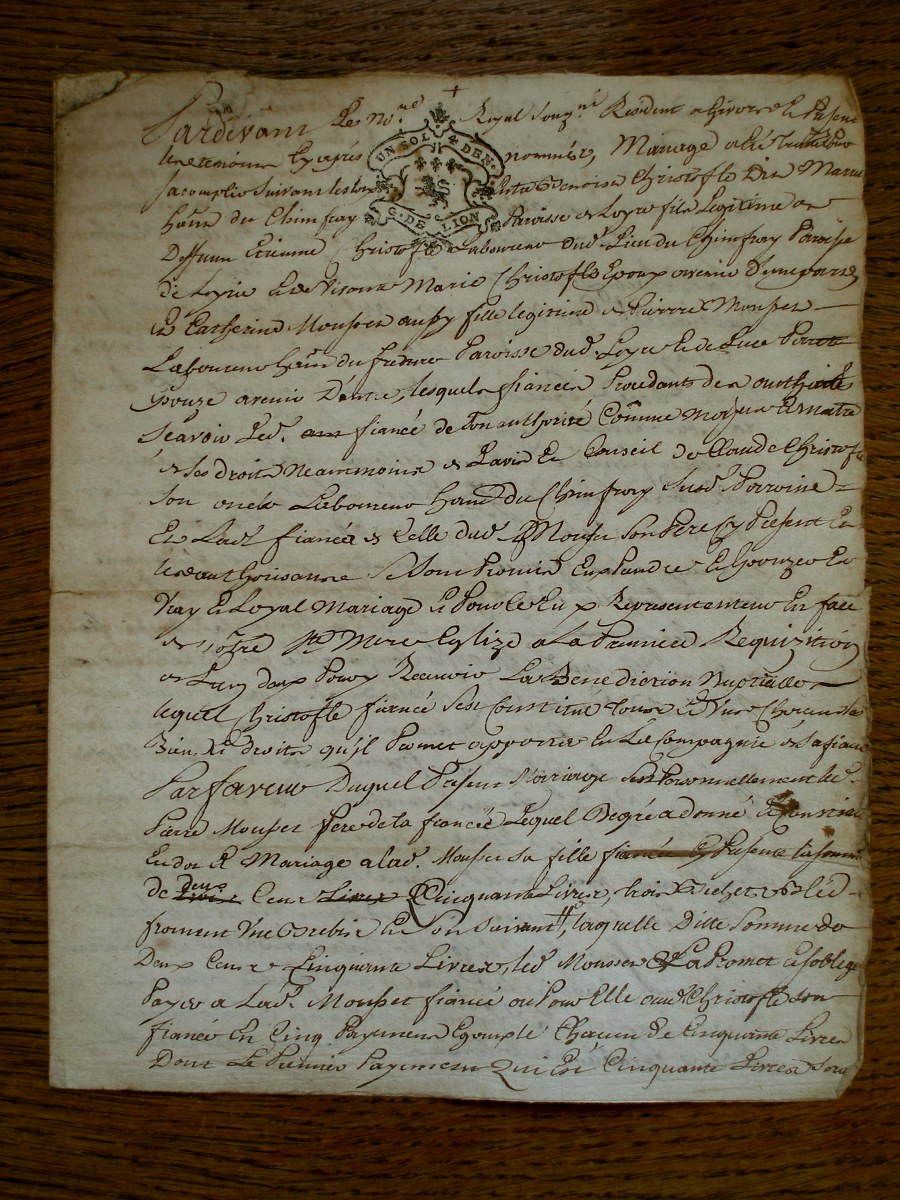 Pardevant Le No.re Royal Souz.né Résident a Givors Et Présens
UN SOL 4 DEN.
G. DE LION
les temoins Cy après nommés, Mariage a été traitté
Sacomplir Suivant les loix Entre Christofle
hãnt du Chimfray Paroisse de Loyre fils Legitime de
Deffunt Etienne Christofle Laboureur dud. Lieu du Chimfray Paroisse
de Loyre Et de Vivante Marie Christofle Epoux avenir d'une part
Et Catherine Mousset aussy fille legitime de Pierre Mousset
Laboureur hãnt du Paroisse dud. Loyre Et de
Epouze avenir D'autre, lesquels fiancés Procedants de authorités
Scavoir Led. fiancé de son authorité Comme Majeur Et maitre
de ses droits Neammoins de Lavis Et Conseil de Claude Christofle
son oncle Laboureur hãnt du Chimfray Susd. Parroisse
Et Lad. fiancée de Celle dud. Mousset Son Père Cy Présent Et
les authorisant Se Sont Promis Prendre Et Epouzer En
Vray Et Loyal Mariage Et Pour Ce Representer En face
de Nôtre Ste Mere Eglize a La Premiere Requizition
de Lun deux Pour y Recevoir La Benediction Nuptialle
lequel Christofle fiancé Sest Constitué tous Et Uns Chacuns Ses
Biens Et droits qu'il Promet apporter En La Compagnie de sa fiancée
Par faveur Duquel Présent Mariage Sest Personnellement
Pierre Mousset Pere de la fiancée Lequel De gré a donné Et Constitué
En dot Et Mariage a lad. Mousset sa fille fiancée Cy Présente la somme
de Deux Cent Livres Cinquante Livres, trois Bichets Bled
froment Une Brebis Et Son Suivant, laquelle Ditte Somme de
Deux Cents Cinquante Livres led. Mousset Promet Et Soblige
Payer a Lad. Mousset fiancée ou Pour Elle aud. Christofle son
fiancé En Cinq Payements Egaux Chacun de Cinquante Livres
Dont Le Premier Payement Qui Est Cinquante Livres Sera